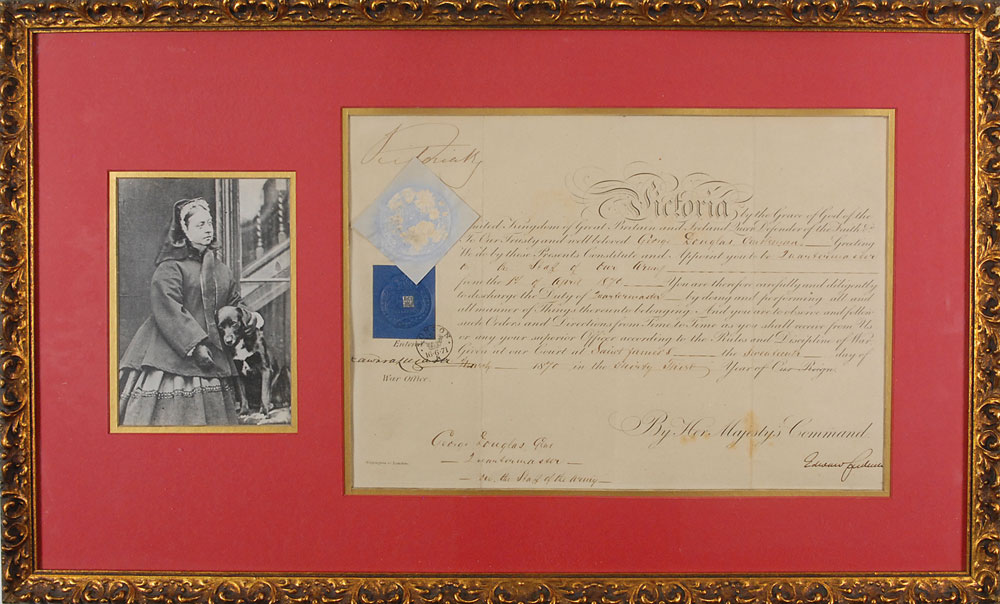 Victoria
Victoria by the Grace of God of the
United Kingdom of Great Britain and Ireland Queen Defender of the Faith &c
To Our Trusty and well beloved George Douglas Greeting
We do by these Presents Constitute and Appoint you to be Quartermaster
on the Staff of Our Army
from the 1st of April 1870. You are therefore carefully and diligently
to discharge the Duty of Quartermaster by doing and performing all and
all manner of Things thereunto belonging. And you are to observe and follow
such Orders and Directions from Time to Time as you shall receive from Us
or any your superior Officer according to the Rules and Discipline of War.
Given at our Court at Saint James's the day of
1870 in the Thirty Third Year of Our Reign
Entered
War Office.
By Her Majesty's Command
Edward
George Douglas
Quartermaster
on the Staff of the Army